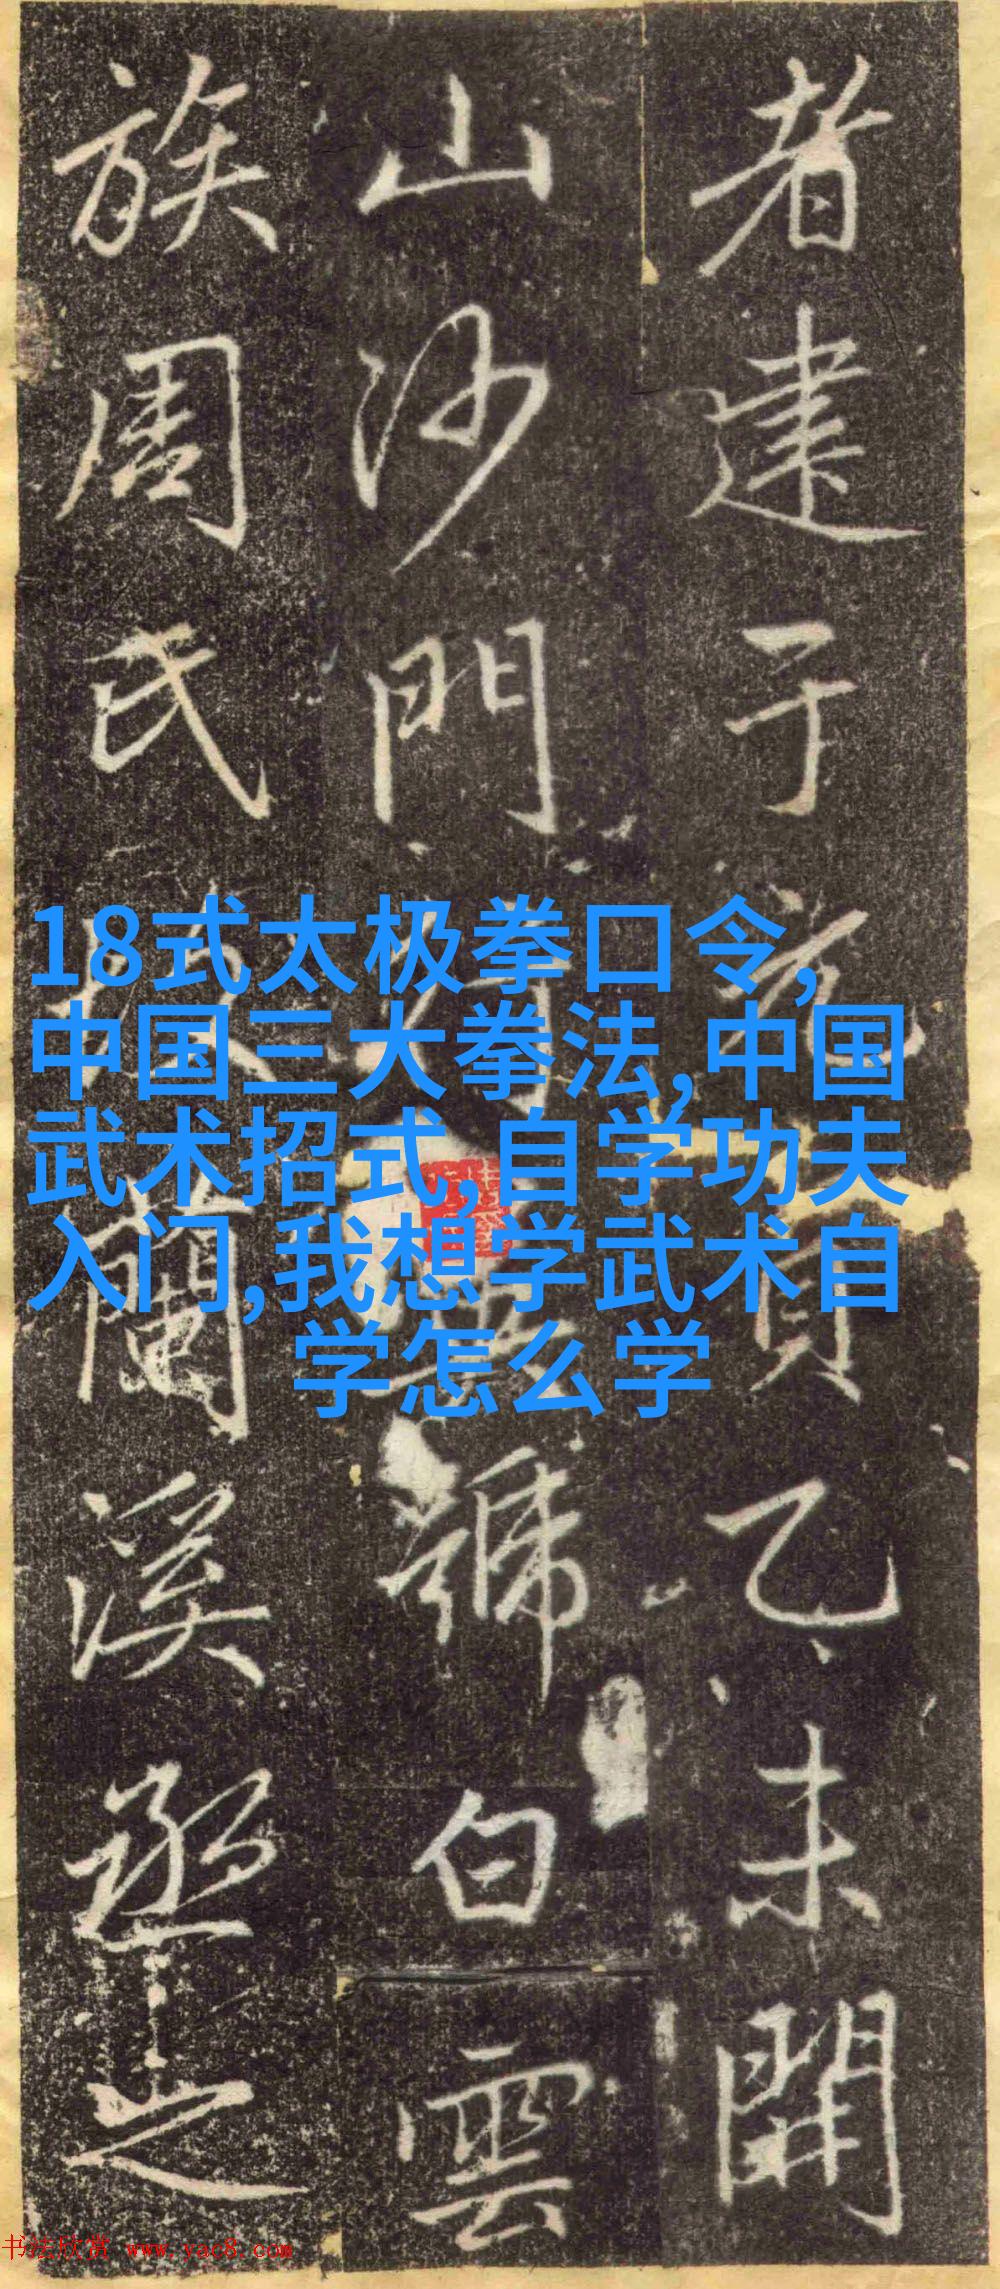 者建于元貞乙未開
山沙門行號白雲
族周氏蘭溪丞之
18式太极拳口令,
中国三大拳法,中国
武术招式,自学功夫
入门,我想学武术自
学怎么学
书法欣赏 www.yac8.com